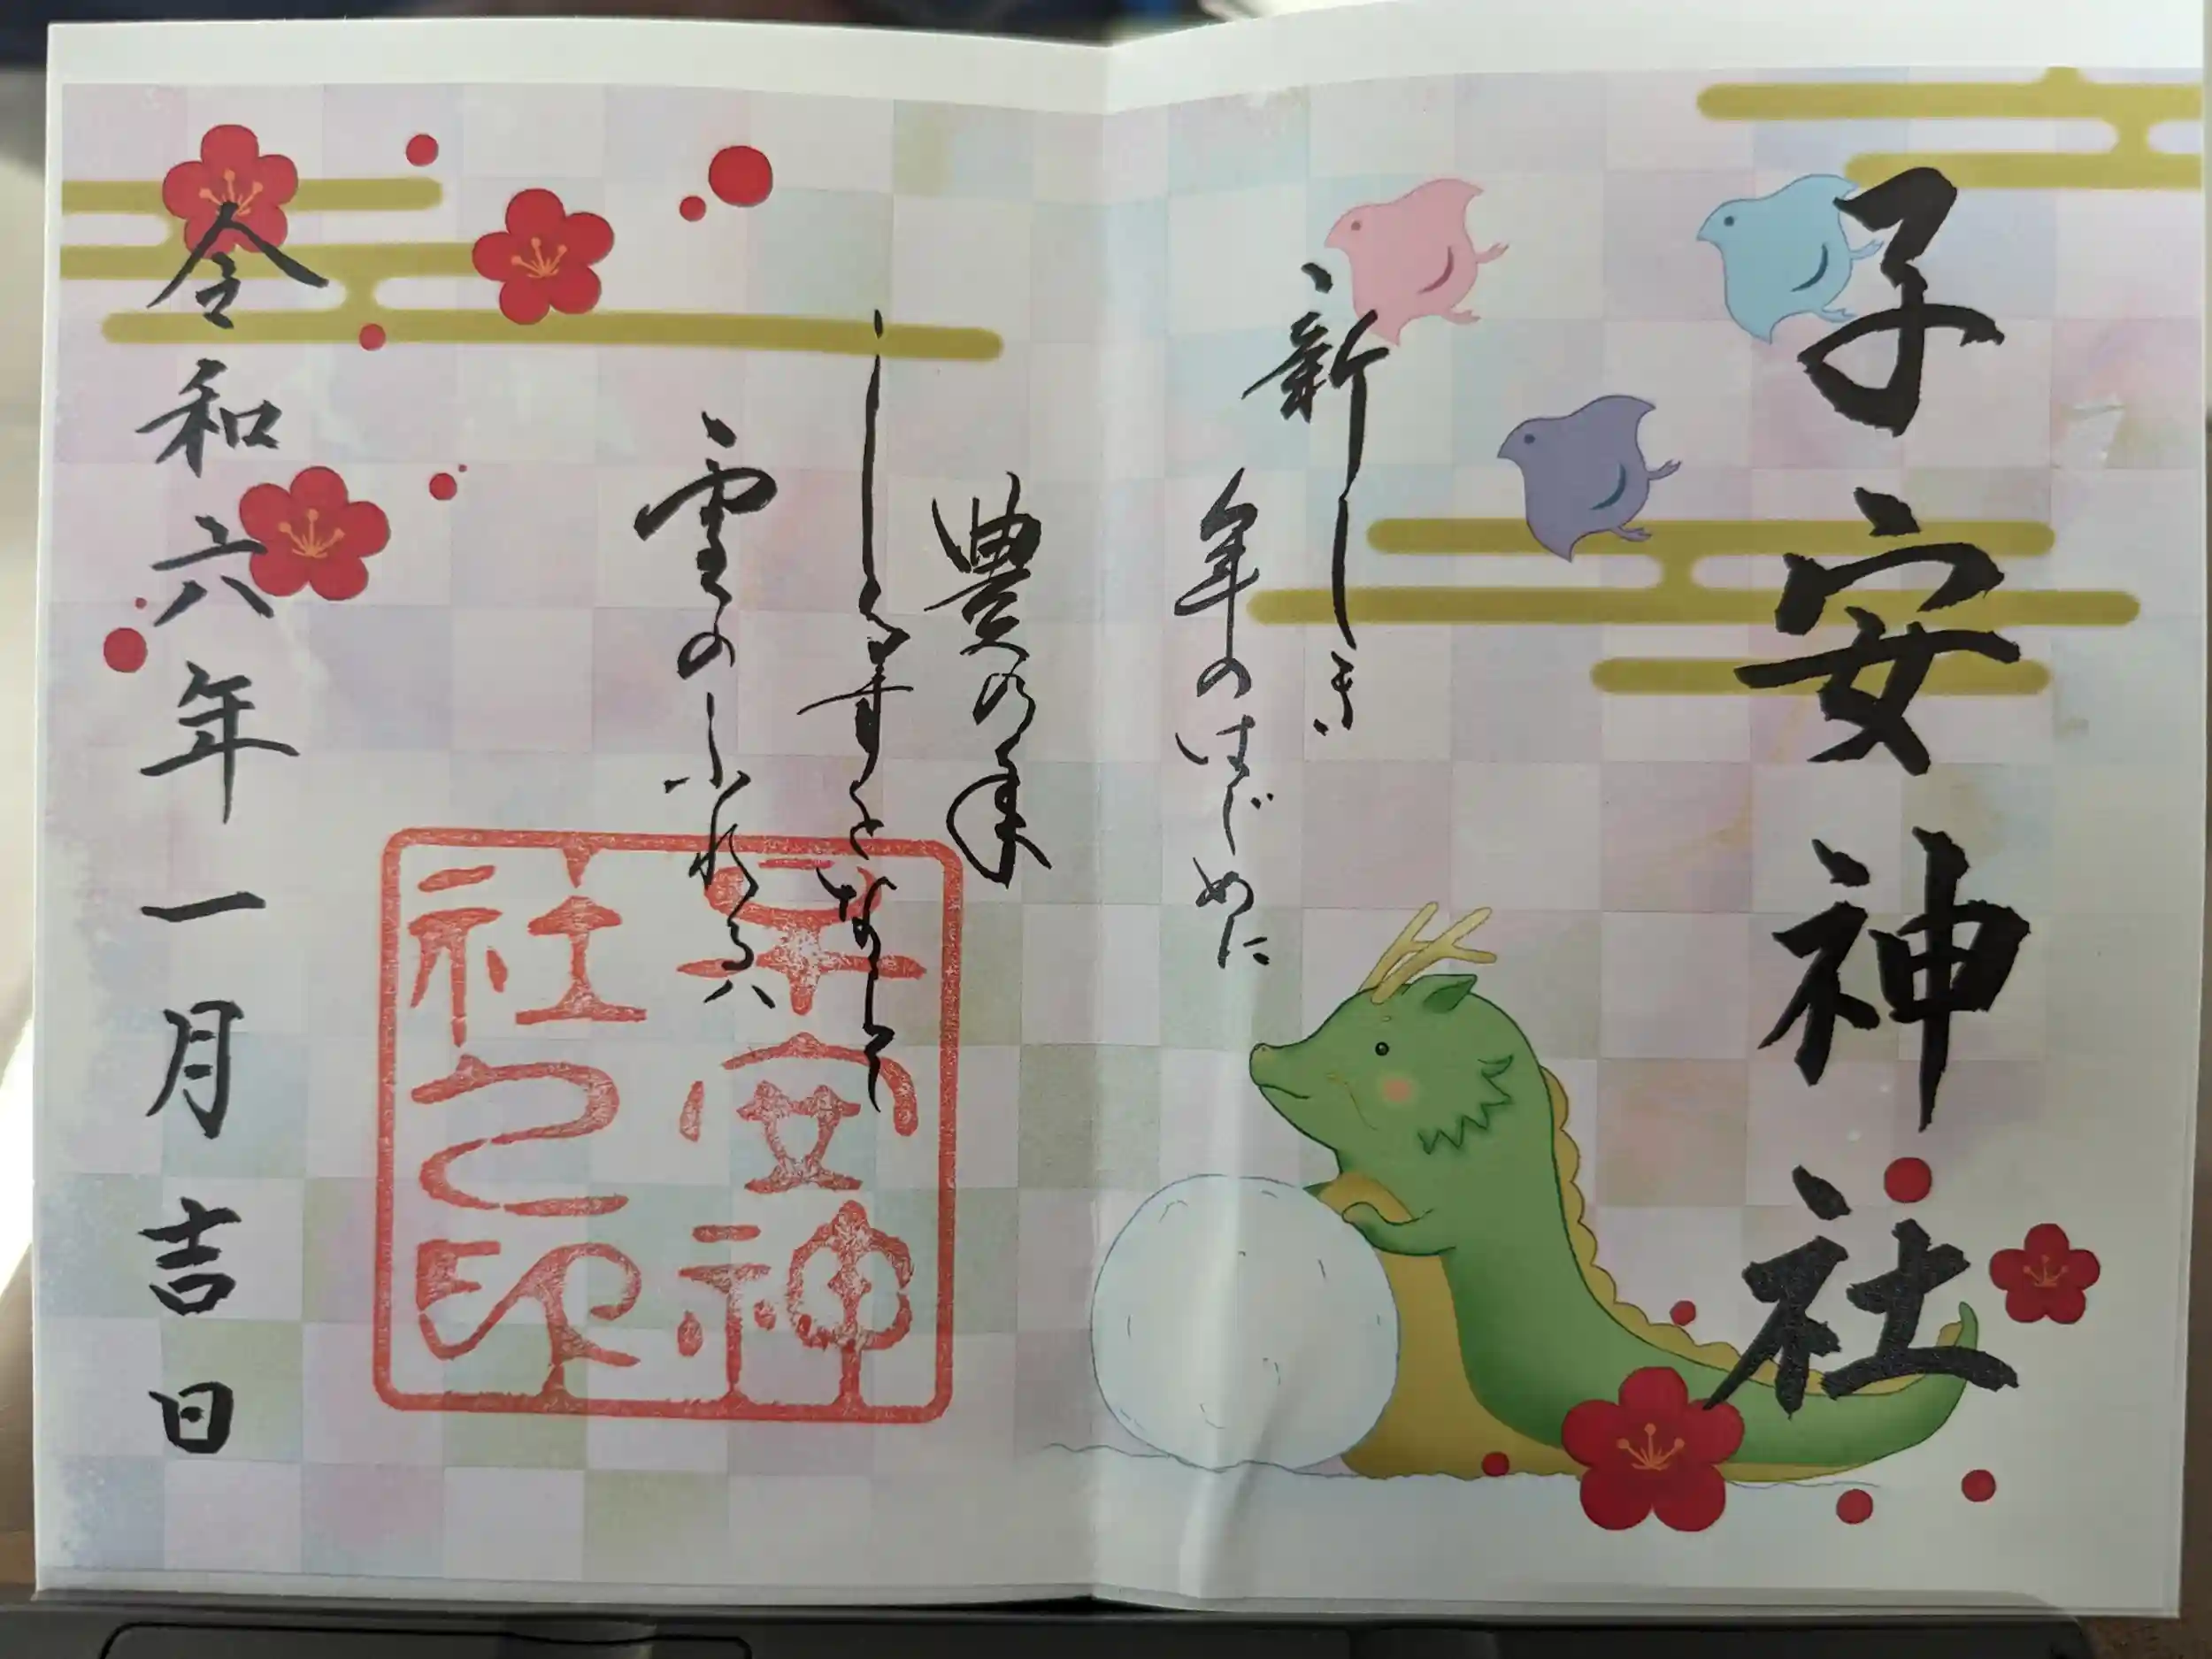 子安神社
新しき
年のはじめに
豊の年
しるすとならし
雪のふれるハ
令和六年一月吉日
子安神
社之印